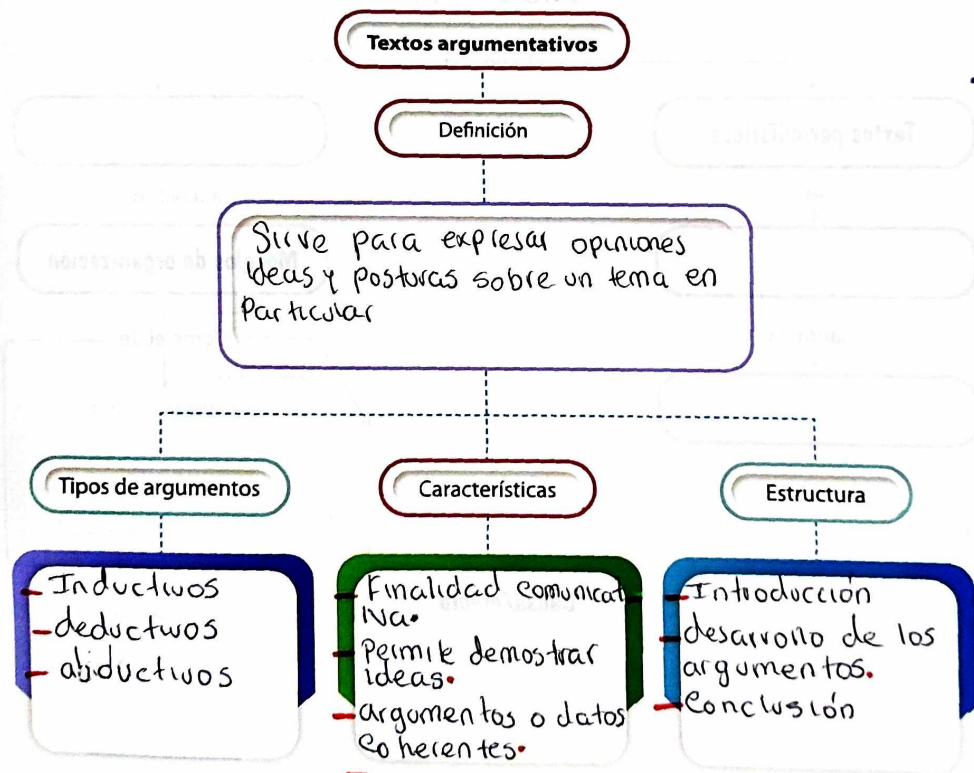 Textos argumentativos
Definición
Sirve para expresar opiniones
ideas y posturas sobre un tema en
Particular
Tipos de argumentos
- Inductivos
- deductivos
- abductivos
Características
- Finalidad comunicat
iva.
- Permite demostrar
ideas.
- argumentos o datos
coherentes.
Estructura
- Introducción
- desarrollo de los
argumentos.
- Conclusión